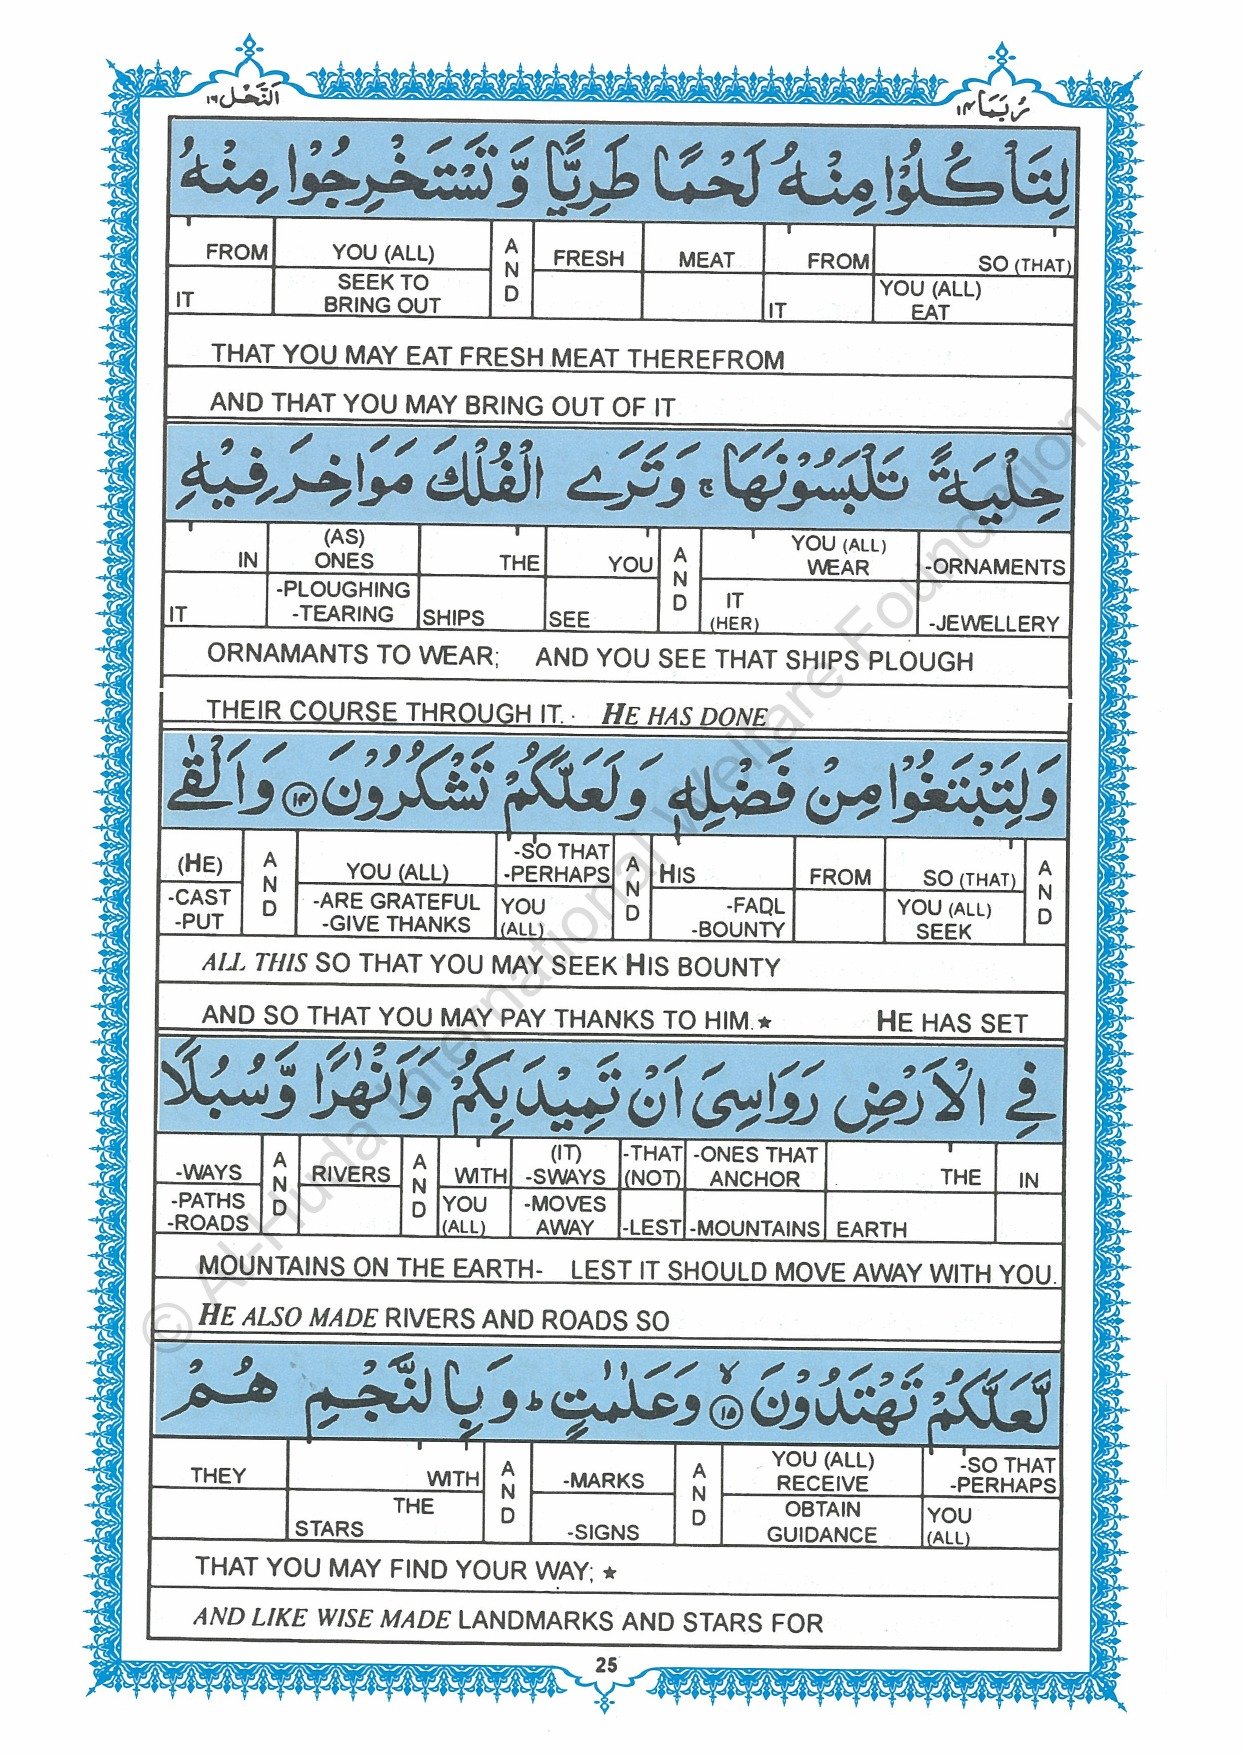 النحل ١٦
ربما ١٤
لِتَاْكُلُوْا مِنْهُ لَحْمًا طَرِيًّا وَّ تَسْتَخْرِجُوْا مِنْهُ
FROM YOU (ALL) AND FRESH MEAT FROM SO (THAT)
IT SEEK TO BRING OUT IT YOU (ALL) EAT
THAT YOU MAY EAT FRESH MEAT THEREFROM
AND THAT YOU MAY BRING OUT OF IT
حِلْيَةً تَلْبَسُوْنَهَا ۚ وَ تَرَى الْفُلْكَ مَوَاخِرَ فِيْهِ
IN (AS) ONES THE YOU AND YOU (ALL) WEAR -ORNAMENTS
IT -PLOUGHING -TEARING SHIPS SEE IT (HER) -JEWELLERY
ORNAMANTS TO WEAR; AND YOU SEE THAT SHIPS PLOUGH
THEIR COURSE THROUGH IT. HE HAS DONE
وَ لِتَبْتَغُوْا مِنْ فَضْلِهٖ وَ لَعَلَّكُمْ تَشْكُرُوْنَ ١٤ وَ اَلْقٰى
(HE) AND YOU (ALL) -SO THAT -PERHAPS AND HIS FROM SO (THAT) AND
-CAST -PUT -ARE GRATEFUL -GIVE THANKS YOU (ALL) -FAḌL -BOUNTY YOU (ALL) SEEK
ALL THIS SO THAT YOU MAY SEEK HIS BOUNTY
AND SO THAT YOU MAY PAY THANKS TO HIM.★ HE HAS SET
فِي الْاَرْضِ رَوَاسِيَ اَنْ تَمِيْدَ بِكُمْ وَ اَنْهٰرًا وَّ سُبُلًا
-WAYS AND RIVERS AND WITH (IT) -SWAYS -THAT (NOT) -ONES THAT ANCHOR THE IN
-PATHS -ROADS YOU (ALL) -MOVES AWAY -LEST -MOUNTAINS EARTH
MOUNTAINS ON THE EARTH- LEST IT SHOULD MOVE AWAY WITH YOU.
HE ALSO MADE RIVERS AND ROADS SO
لَّعَلَّكُمْ تَهْتَدُوْنَ ۙ ١٥ وَ عَلٰمٰتٍ ؕ وَ بِالنَّجْمِ هُمْ
THEY WITH AND -MARKS AND YOU (ALL) RECEIVE -SO THAT -PERHAPS
THE STARS -SIGNS OBTAIN GUIDANCE YOU (ALL)
THAT YOU MAY FIND YOUR WAY; ★
AND LIKE WISE MADE LANDMARKS AND STARS FOR
25
© Al-Huda International Welfare Foundation